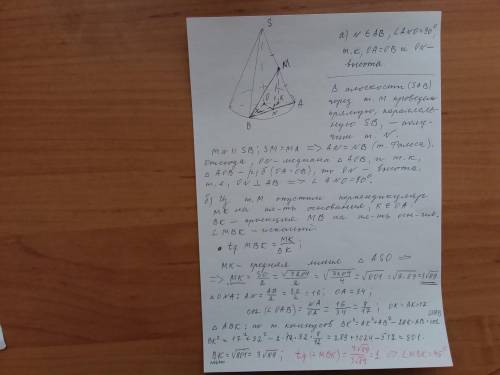 S
M
O
K
A
B
N
а) N ∈ AB, ∠ANO=90°,
т.к. OA=OB и ON–
высота
В плоскости (SAB)
через т. M проведём
прямую, параллель-
ную SB, – полу-
чим т. N.
MN ∥ SB; SM=MA => AN=NB (т. Фалеса).
Отсюда, ON – медиана △AOB, и т.к.
△AOB – р/б (OA=OB), то ON – высота,
т.е. ON ⊥ AB => ∠ANO=90°.
б) Из т. M опустим перпендикуляр
MK на пл-ть основания, K ∈ OA.
BK – проекция MB на пл-ть осн-ния,
∠MBK – искомый
tg MBK = MK/BK;
MK – средняя линия △ASO =>
△ONA: AN = AB/2 = 32/2 = 16; OA = 34;
cos(∠OAB) = NA/OA = 16/34 = 8/17; OK = AK = 17
△ABK: по т. косинусов BK² = AK² + AB² – 2AK·AB·cos
BK² = 17² + 32² – 2·17·32·8/17 = 289 + 1024 – 512 = 801.
BK = √801 = 3√89;